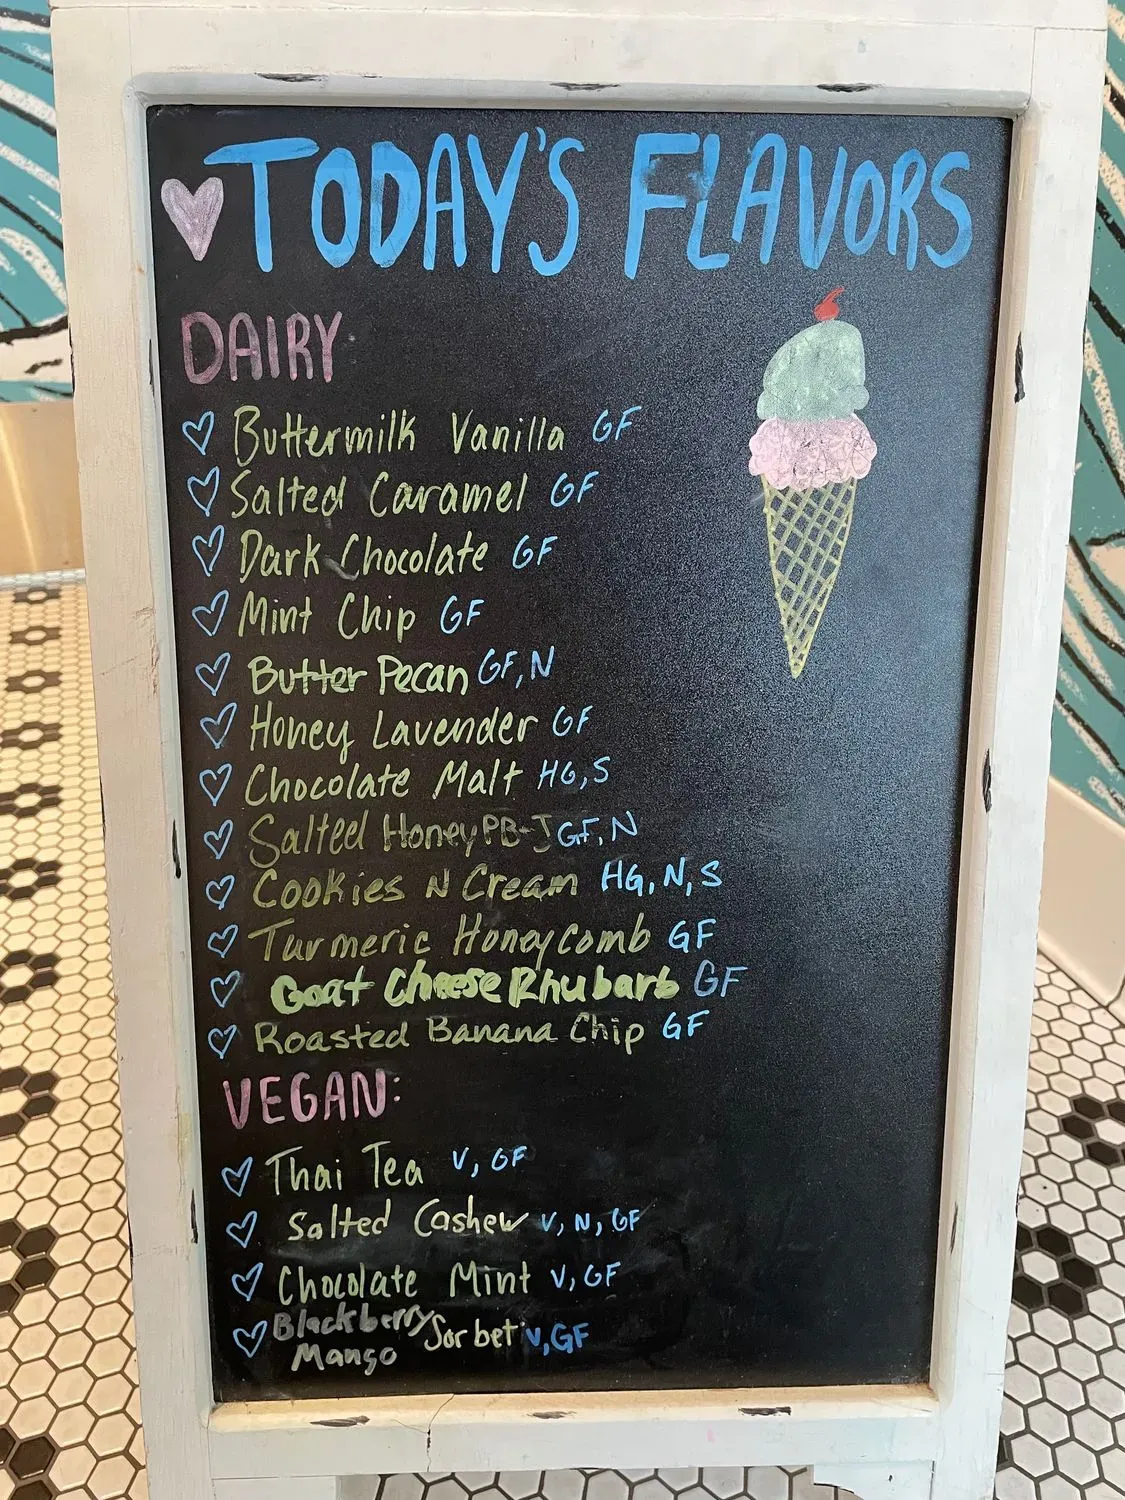 TODAY'S FLAVORS
DAIRY
Buttermilk Vanilla GF
Salted Caramel GF
Dark Chocolate GF
Mint Chip GF
Butter Pecan GF, N
Honey Lavender GF
Chocolate Malt HG, S
Salted Honey PB+J GF, N
Cookies N Cream HG, N, S
Turmeric Honeycomb GF
Goat Cheese Rhubarb GF
Roasted Banana Chip GF
VEGAN:
Thai Tea V, GF
Salted Cashew V, N, GF
Chocolate Mint V, GF
Blackberry Sorbet V, GF
Mango